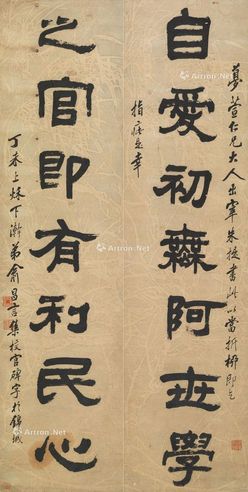 夢萱仁兄大人出宰朱提書此以當折柳即乞
自愛初無阿世學
指疵是幸
之官即有利民心
丁未上秋下澣弟俞昌言集校官碑字於錦城